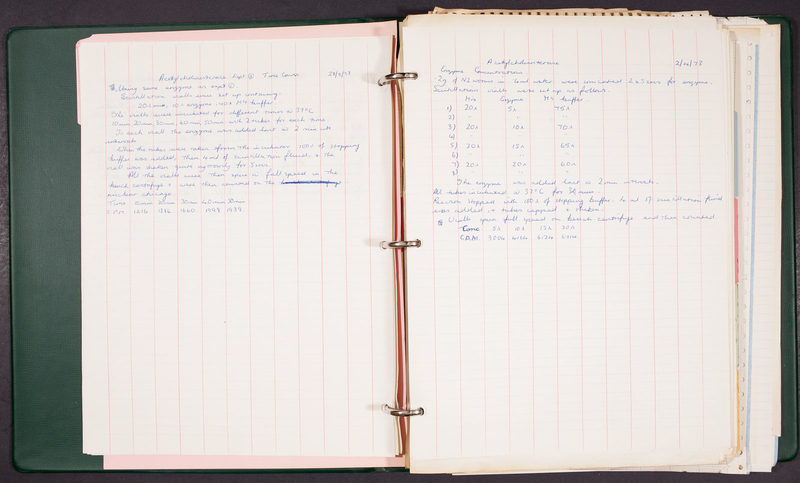 Acetylcholinesterase Expt ② Time Course
Using same enzyme as expt ①.
Scintillation vials were set up containing:
20λ 10λ enzyme 70λ buffer
vials were incubated for different times @ 37°C
10min 20min 30min 40min 50min with 2 tubes for each time.
To each vial the enzyme was added last at 2 min
intervals
When the tubes were taken from the incubator 100λ of stopping
buffer was added. Then 4ml of scintillation fluid & the
vial was shaken quite vigorously for 5secs.
All the vials were then spun @ full speed in the
bench centrifuge & were then counted on the
nuclear chicago
Time 10min 20min 30min 40min 50min
C.P.M.
Acetylcholinesterase
Enzyme Concentrations
2g of N2 worms in 4ml water were sonicated for enzyme.
Scintillation vials were set up as follows.
Enzyme buffer
1) 20λ 5λ 75λ
2) " " "
3) 20λ 10λ 70λ
4)
5) 20λ 15λ 65λ
6) " "
7) 20λ 20λ 60λ
8) " "
The enzyme was added last @ 2min intervals.
All tubes incubated @ 37°C for 30 mins
Reaction stopped with 100λ of stopping buffer. 4ml of scintillation fluid
was added & tubes capped & shaken.
Vials spun full speed on bench centrifuge and then counted.
Conc 5λ 10λ 15λ 20λ
C.P.M.